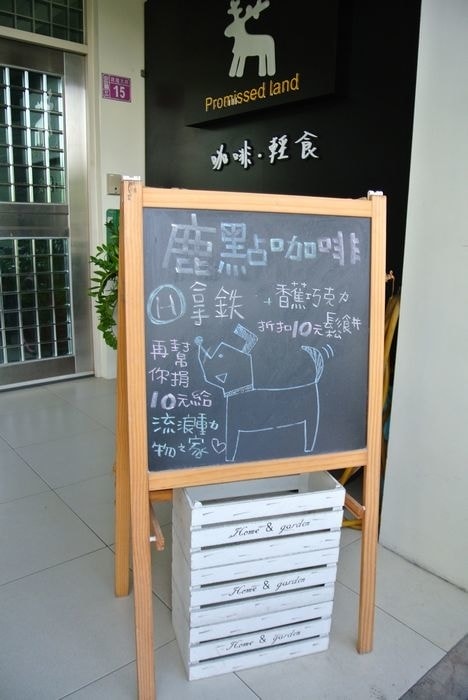 15
Promissed land
咖啡·輕食
鹿點咖啡
H 拿鐵 + 香蕉巧克力鬆餅
折扣10元
再幫
你捐
10元給
流浪動
物之家♡
Home & garden
Home & garden
Home & garden